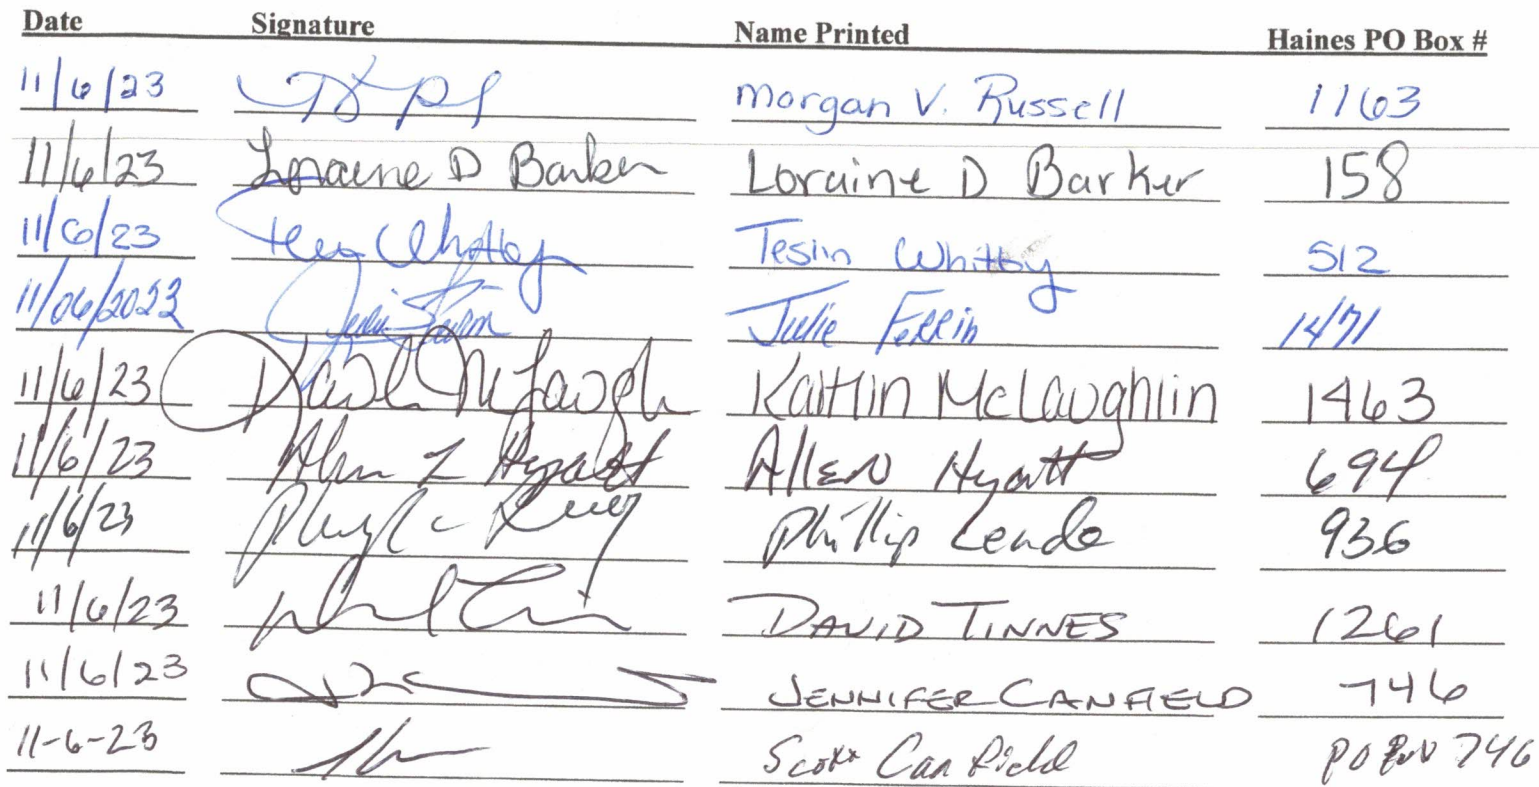 Date Signature Name Printed Haines PO Box #
11/6/23 Morgan V. Russell 1163
11/6/23 Loraine D Barker Loraine D Barker 158
11/6/23 Teslin Whitby 512
11/06/2023 Julie Ferrin Julie Ferrin 1471
11/6/23 Kaitlin McLaughlin 1463
11/6/23 Allen L Hyatt Allen Hyatt 694
11/6/23 Phillip 936
11/6/23 David Tinnes 1261
11/6/23 Jennifer Canfield 746
11-6-23 Scott Canfield PO Box 746